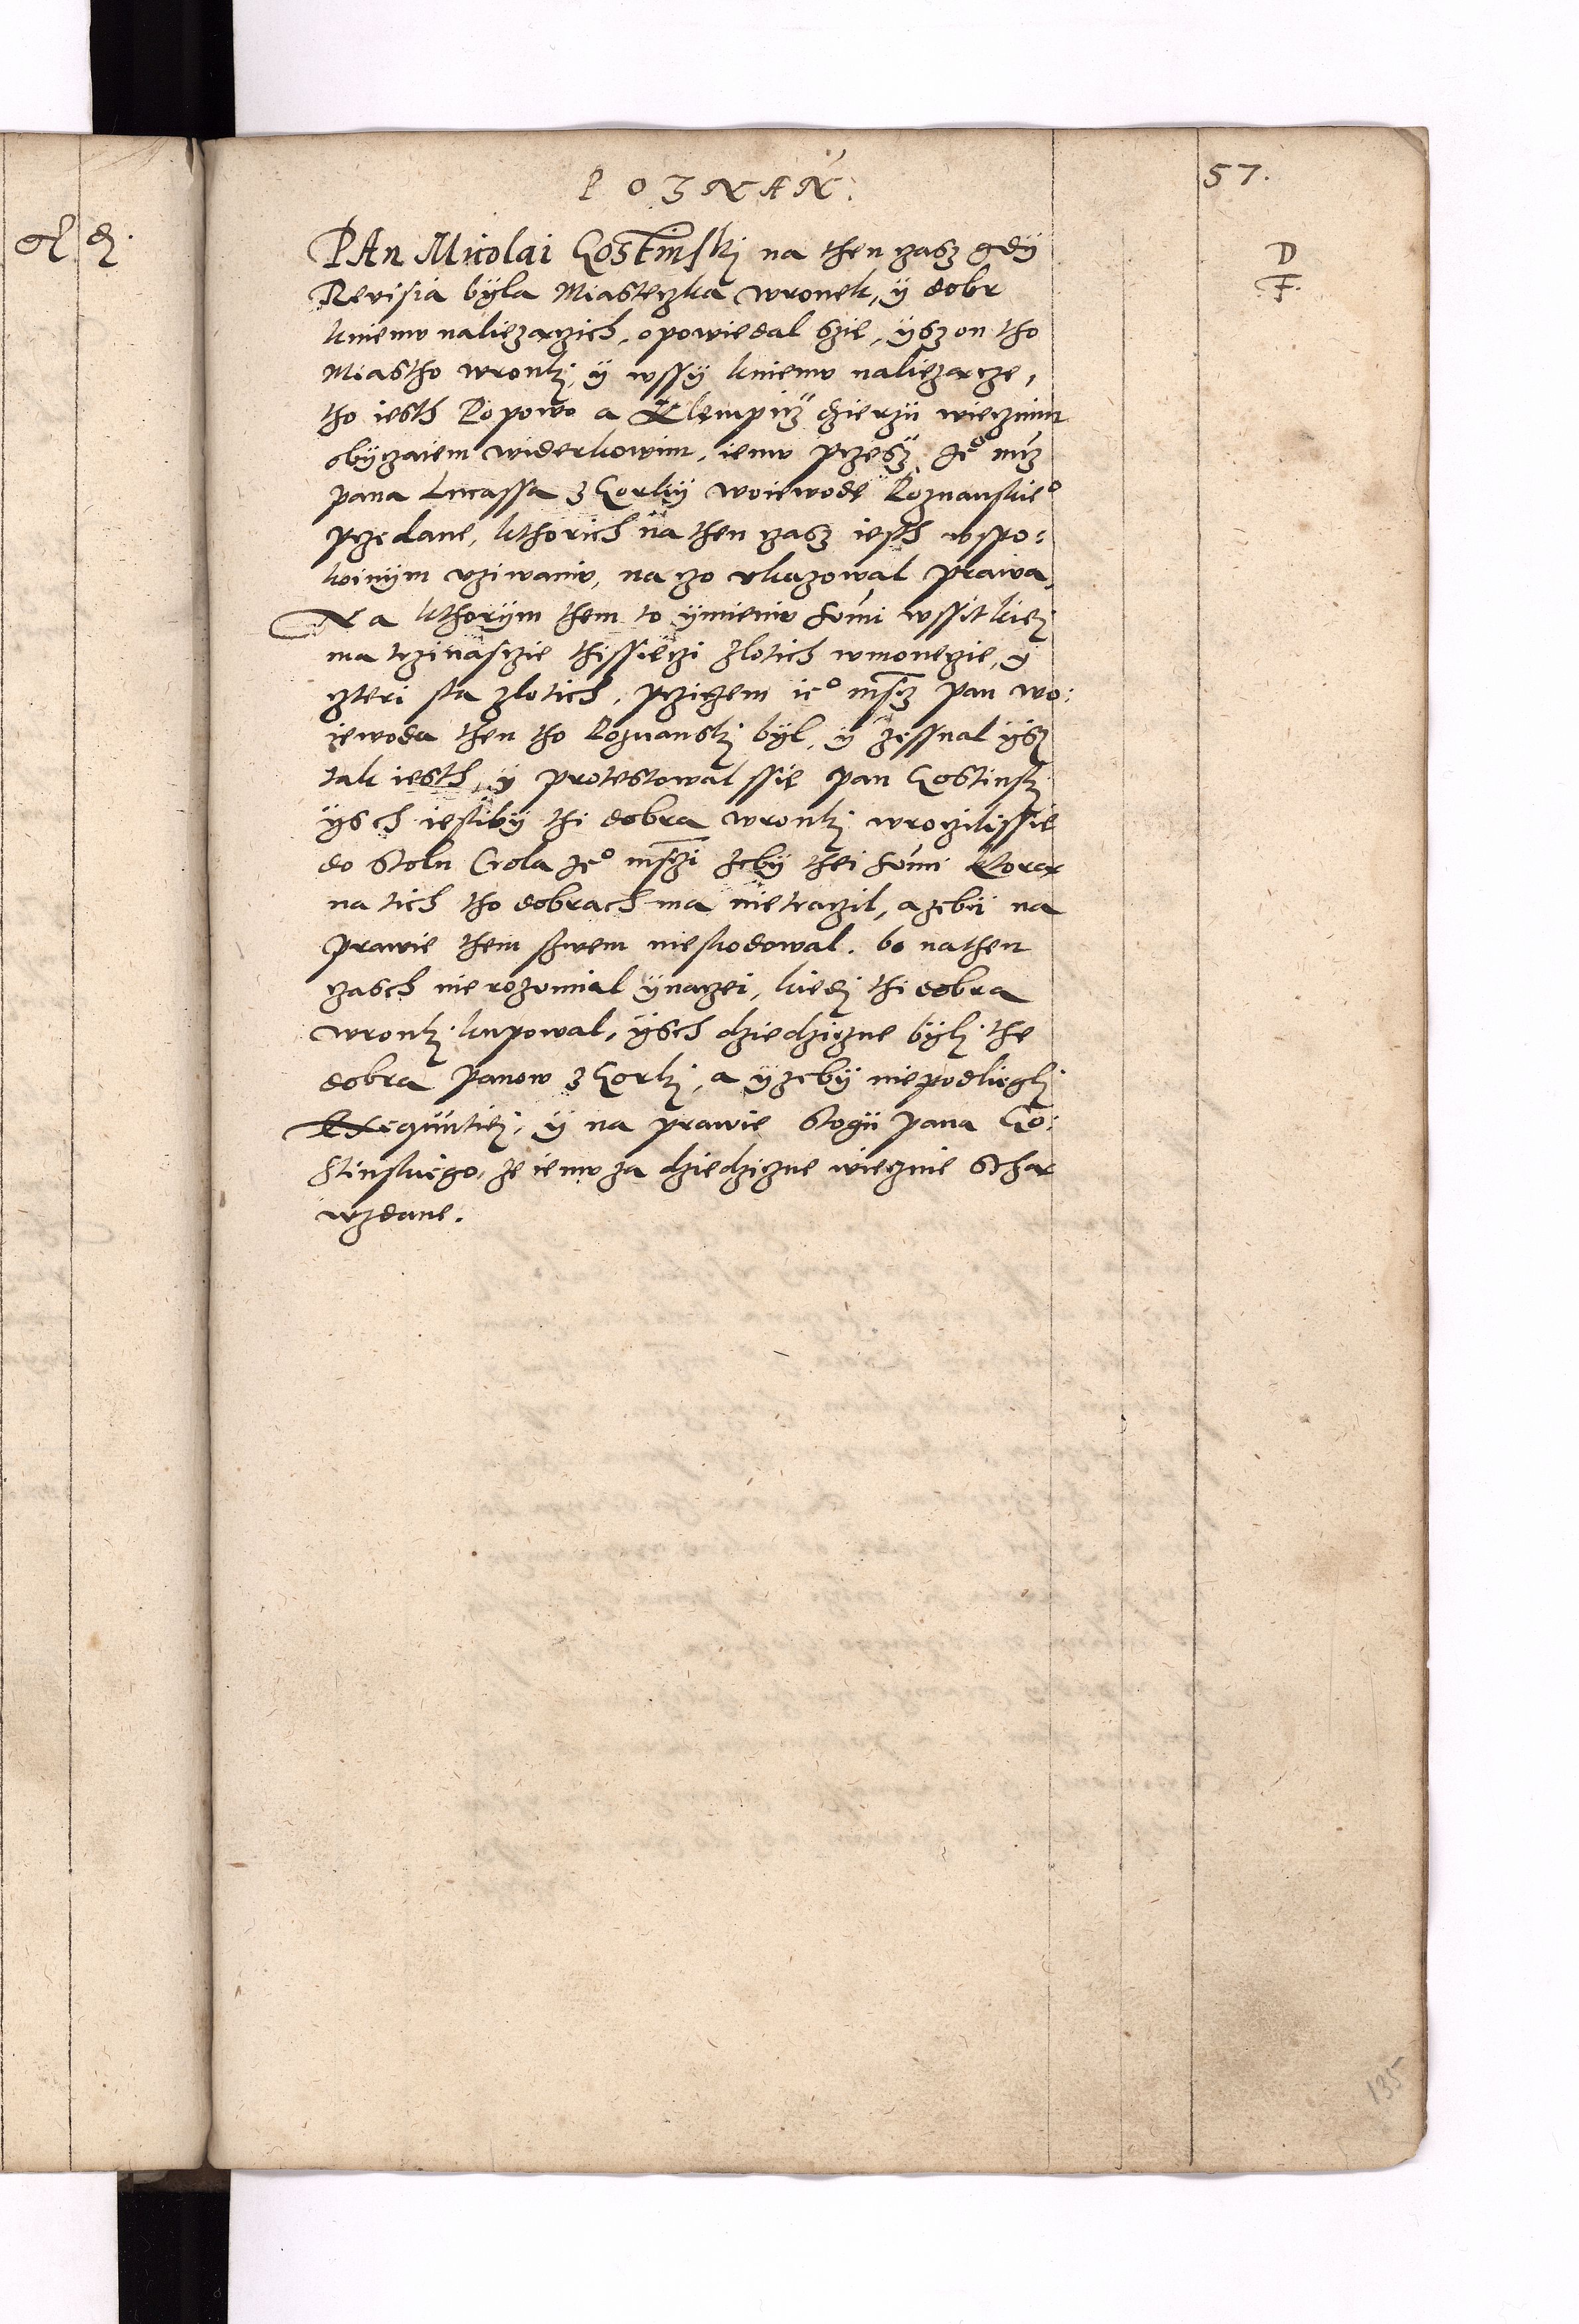 POZNAŃ.
57.
D
F.
PAn Micolai Gostinskj na then czasz gdÿ
Revisia bÿla Miasteczka wronek, ÿ dobr
kniemv naliezaczich, opowiedal szie, ÿsz on tho
Miastho wronkj, ÿ wssÿ kniemv naliezacze,
tho iesth Popowo a Klempicz dzierzÿ wiecznim
obÿczaiem widerkowim, iemv przesz Jeº mcz
pana Lucassa z Gorkÿ woiewode Poznanskieº
przedane, kthorich na then czasz iesth wspo:
koinÿm vziwaniv, na czo vkazowal prawa,
Na kthorÿm them to ÿmieniv somi wssitkiej
ma trzinasczie thissieczi zlotich wmonecie, ÿ
czteri sta zlotich, przitem ieº mscz pan wo:
iewoda then tho Poznanskj bÿl, ÿ zessnal ÿsz
tak iesth, ÿ protestowal ssie pan Gostinskj
ÿsch iesliby thi dobra wronkj wrocilissie
do stolu Crola Jeº msczi zebÿ thei somi ktora
na tich tho dobrach ma nietraczil, a zebÿ na
prawie them szwem nieskodowal. bo nathen
czasch nie rozvmial ÿnaczei, kiedj thi dobra
wronkj kupowal, ÿsch dziedziczne bÿlj the
dobra panow z Gorkj, a ÿzebÿ niepodlieglj
Exequutiej, ÿ na prawie stogii pana Go:
stinskiego, ze iemv za dziedziczne wiecznie
wzdane.
135